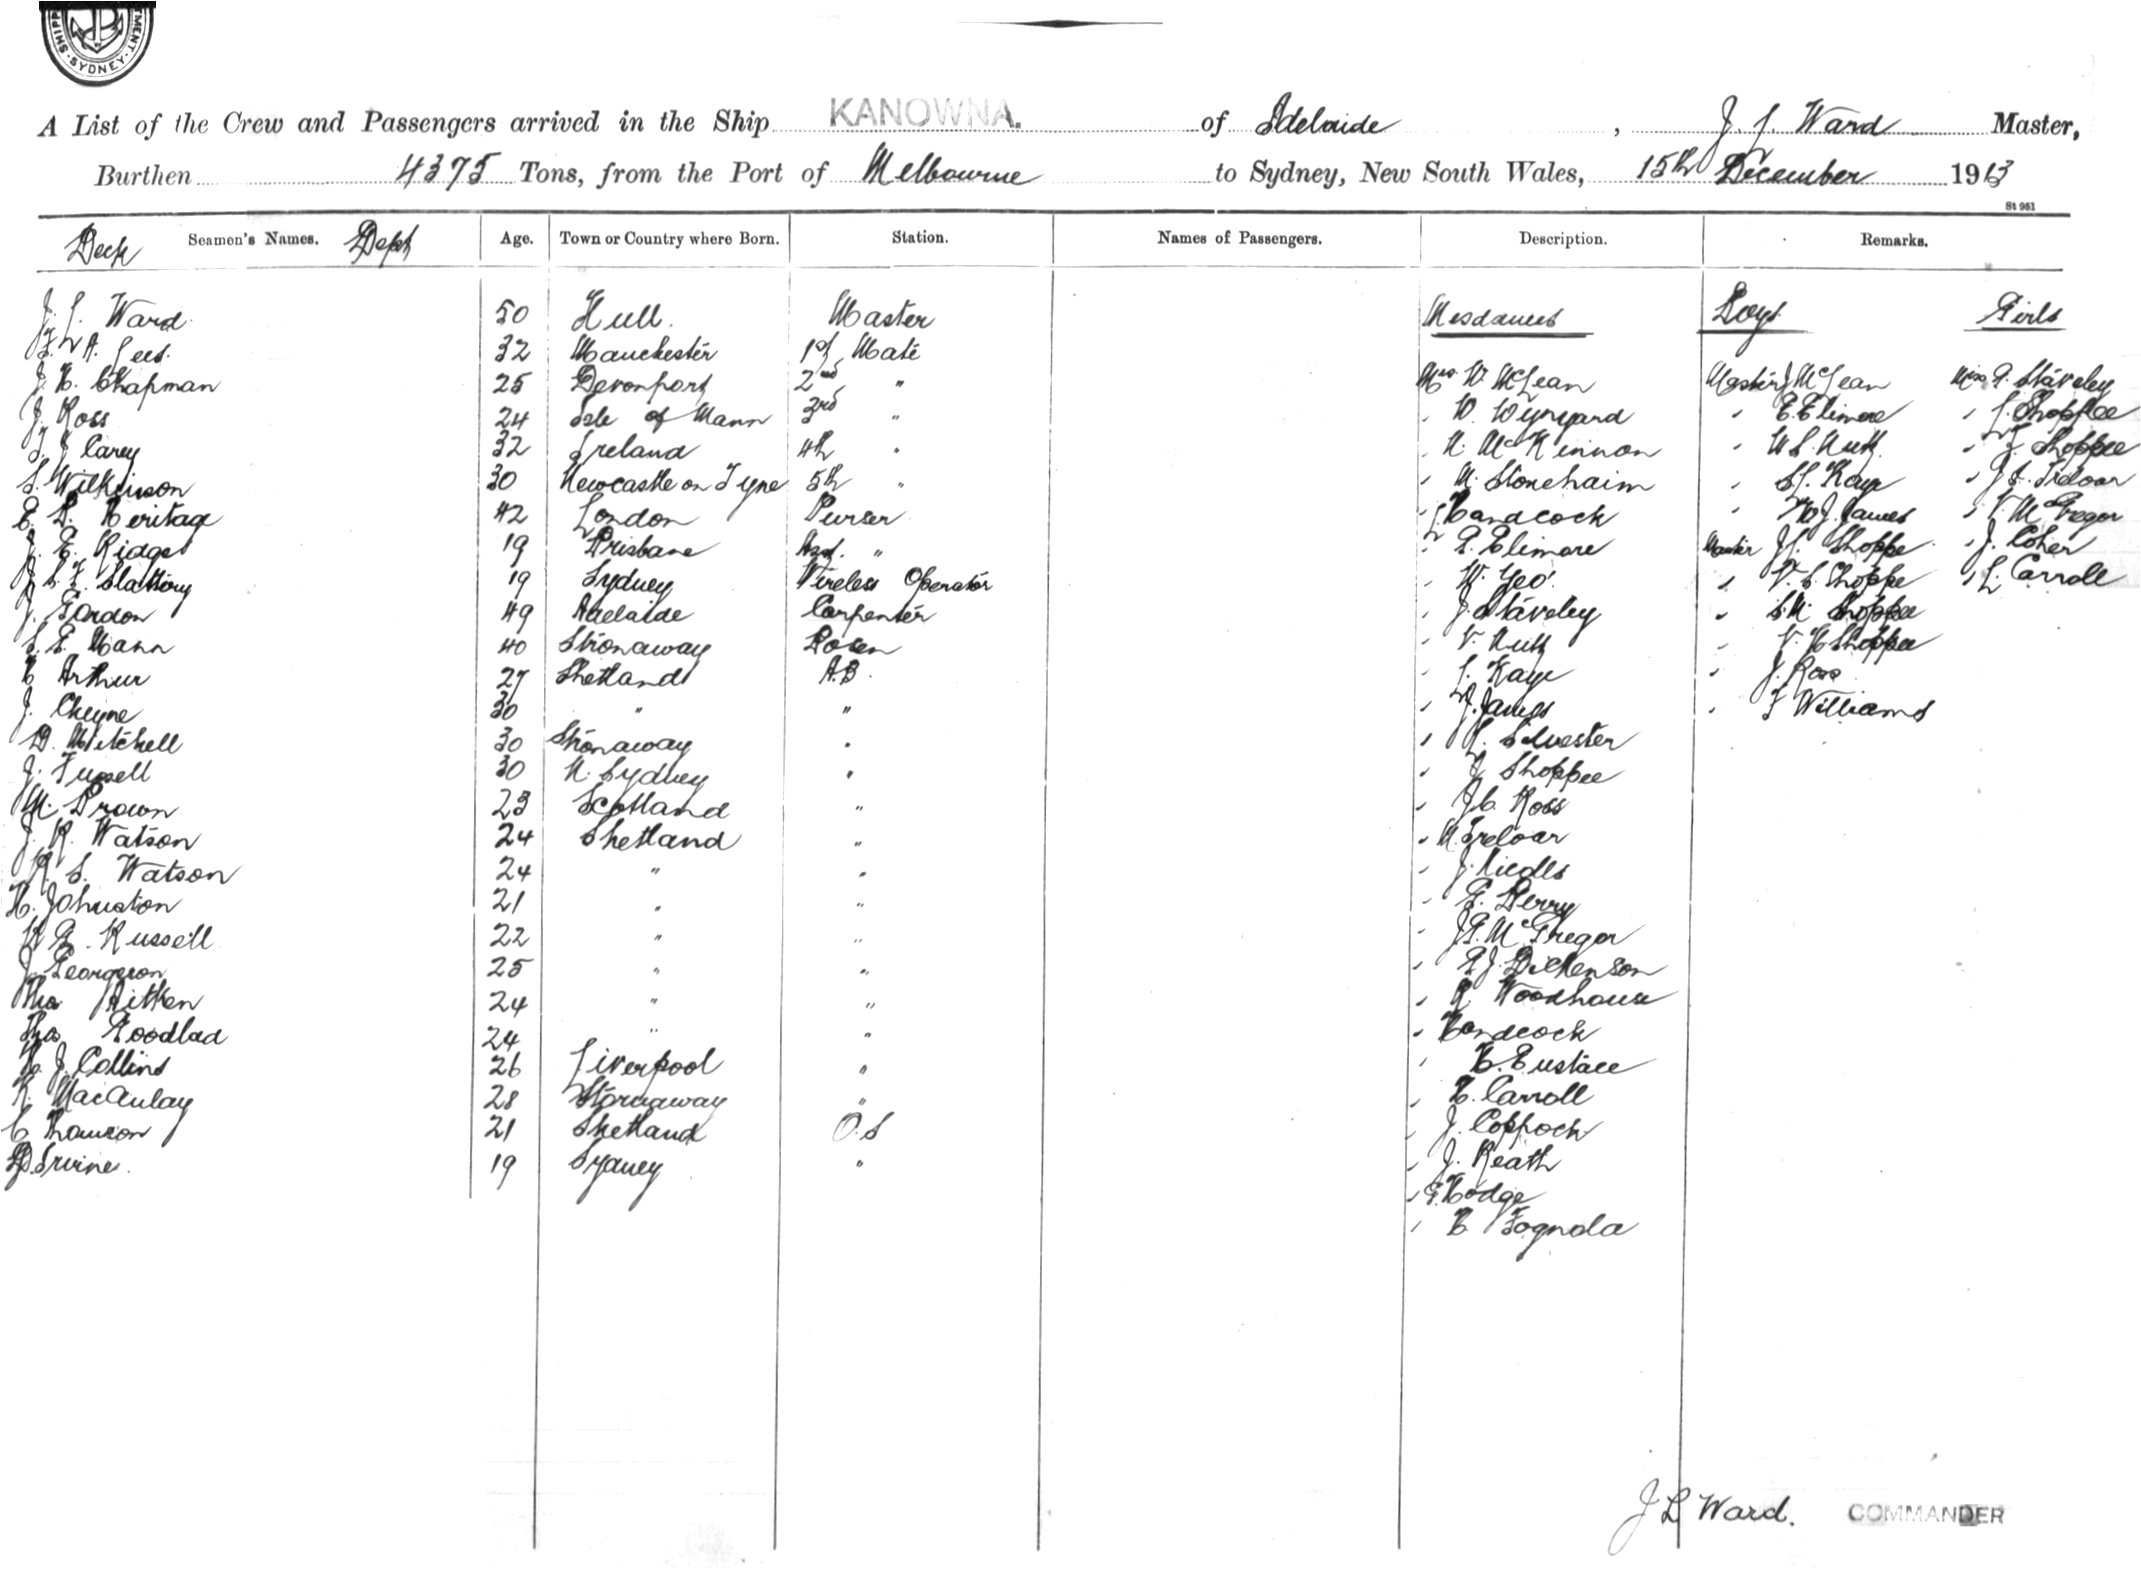 SHIPP MENT · SYDNEY ·
A List of the Crew and Passengers arrived in the Ship KANOWNA. of Adelaide, J. L. Ward Master,
Burthen 4375 Tons, from the Port of Melbourne to Sydney, New South Wales, 15th December 1913
St 951
Deck Seamen's Names. Dept Age. Town or Country where Born. Station. Names of Passengers. Description. Remarks.
Mesdames Boys Girls
J. L. Ward 50 Hull. Master
A. Lees. 32 Manchester 1st Mate
J. H. Chapman 25 Devonport 2nd " Mrs W. McLean Master J McLean Miss A. Staveley
J. Ross 24 Isle of Mann 3rd " " W. Wynyard " E. Elimore " L. Shoppee
J. J Carey 32 Ireland 4th " " N. McKinnon " W S. Nutt " Shoppee
S. Wilkinson 30 Newcastle on Tyne 5th " " M. Stonehaim " S. Kaye " J. S. Treloar
E. B. Heritage 42 London Purser " L. Handcock " J. James " V. McGregor
J. E. Ridge 19 Brisbane Asst. " " E. Elimore Master J. Shoppe " J. Coher
J. L. F. Slattery 19 Sydney Wireless Operator " W. Geo. " V. S. Shoppe " L. Carroll
J. Gordon 49 Adelaide Carpenter " J. Staveley " S. M. Shoppee
S. G. Mann 40 Stronaway Bosen " V. Nutt " V. H Shoppee
C Arthur 27 Shetland A.B. " S. Kaye " J. Ross
J. Cheyne 30 " " " J. James " F Williams
D. Mitchell 30 Stronaway " " L. Silvester
J. Tussell 30 N. Sydney " " J Shoppee
M. Brown 23 Scotland " " J. C. Ross
J. R. Watson 24 Shetland " " M. Treloar
R. S. Watson 24 " " " J. Riedls
H. Johnston 21 " " " E. Berry
R G. Russell 22 " " " J. G. McGregor
J. Georgeson 25 " " " A J. Dickenson
Thos Aitken 24 " " " R Woodhouse
Thos Goodlad 24 " " " Handcock
J. Collins 26 Liverpool " " H. Eustace
K. MacAulay 28 Stornaway " " H. Carroll
C Thomson 21 Shetland O.S " J. Coppock
D Irvine. 19 Sydney " " J. Heath
" G. Hodge
" H. Tognola
J L Ward. COMMANDER